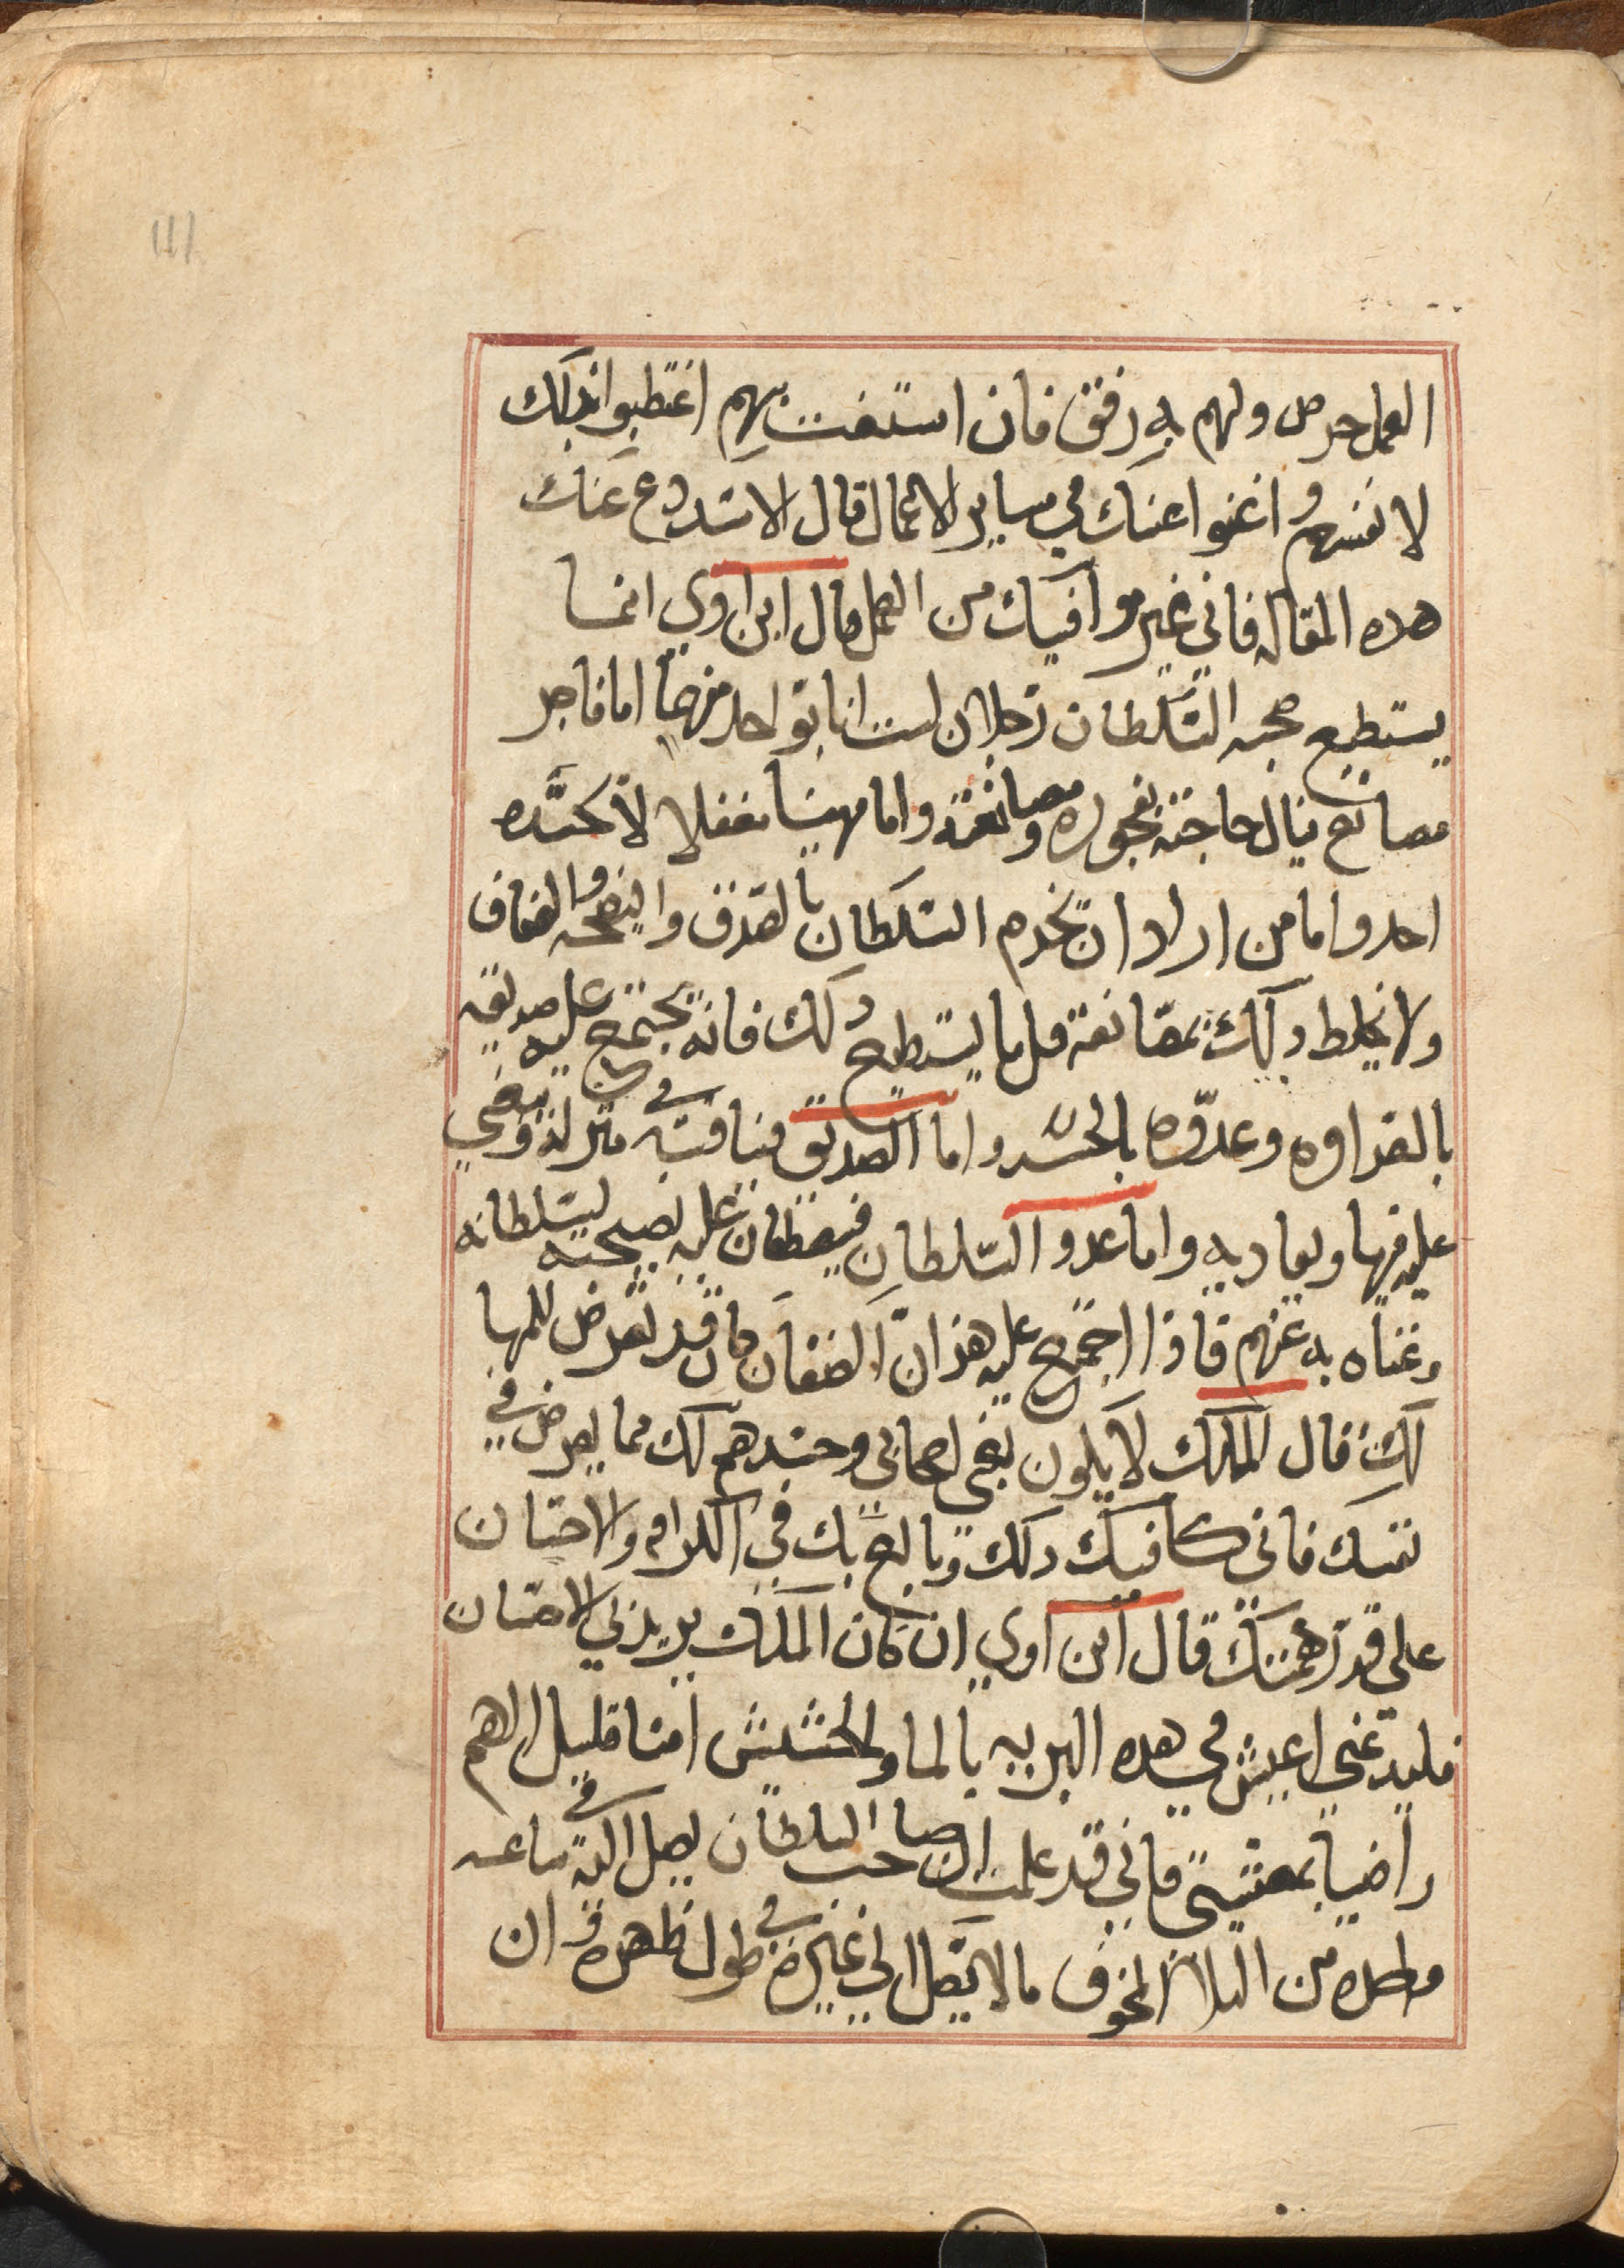 111
العمل حرص ولهم به رفق فان استعنت بهم اغتطبوا بذلك
لانفسهم واغنوا عنك في ساير الاعمال قال الاسد دع عنك
هده المقاله فاني غير موافيك من العمل قال ابن اوي انما
يستطيع صحبه السلطان رجلان لست انا بواحد منهما اما فاجر
مصانع ينال حاجته بفجوره ومصانعته واما مهينا مغفلا لا يحسده
احد واما من اراد ان يخدم السلطان بالصدق والنصحه والعفاف
ولا يخلط دلك بمصانعة قل ما يستطيع دلك فانه يجتمع عليه صديقه
بالعداوه وعدوه بالحسد واما الصديق فينافسه في منزلة وبغي
عليه فيها ويعاديه واما عدو السلطان فيضطغن عليه نصيحته لسلطانه
وغناه به عنهم فاذا اجتمع عليه هذان الصفان كان قد تعرض للمها
لك قال الملك لا يكون بغي اصحابي وحسدهم لك مما يعرض في
نفسك فاني كافيك دلك وبالغ بك في الكرامه والاحسان
علي قدر همتك قال ابن اوي ان كان الملك يريد بي الاحسان
فليدعني اعيش في هده البريه بالما والحشيش امنا قليل الهم
راضيا بمعيشتي فاني قد علمت ان صاحب السلطان يصل اليه في ساعه
واحده من البلا والخوف ما لا يصل الي غيره في طول ظهره وان